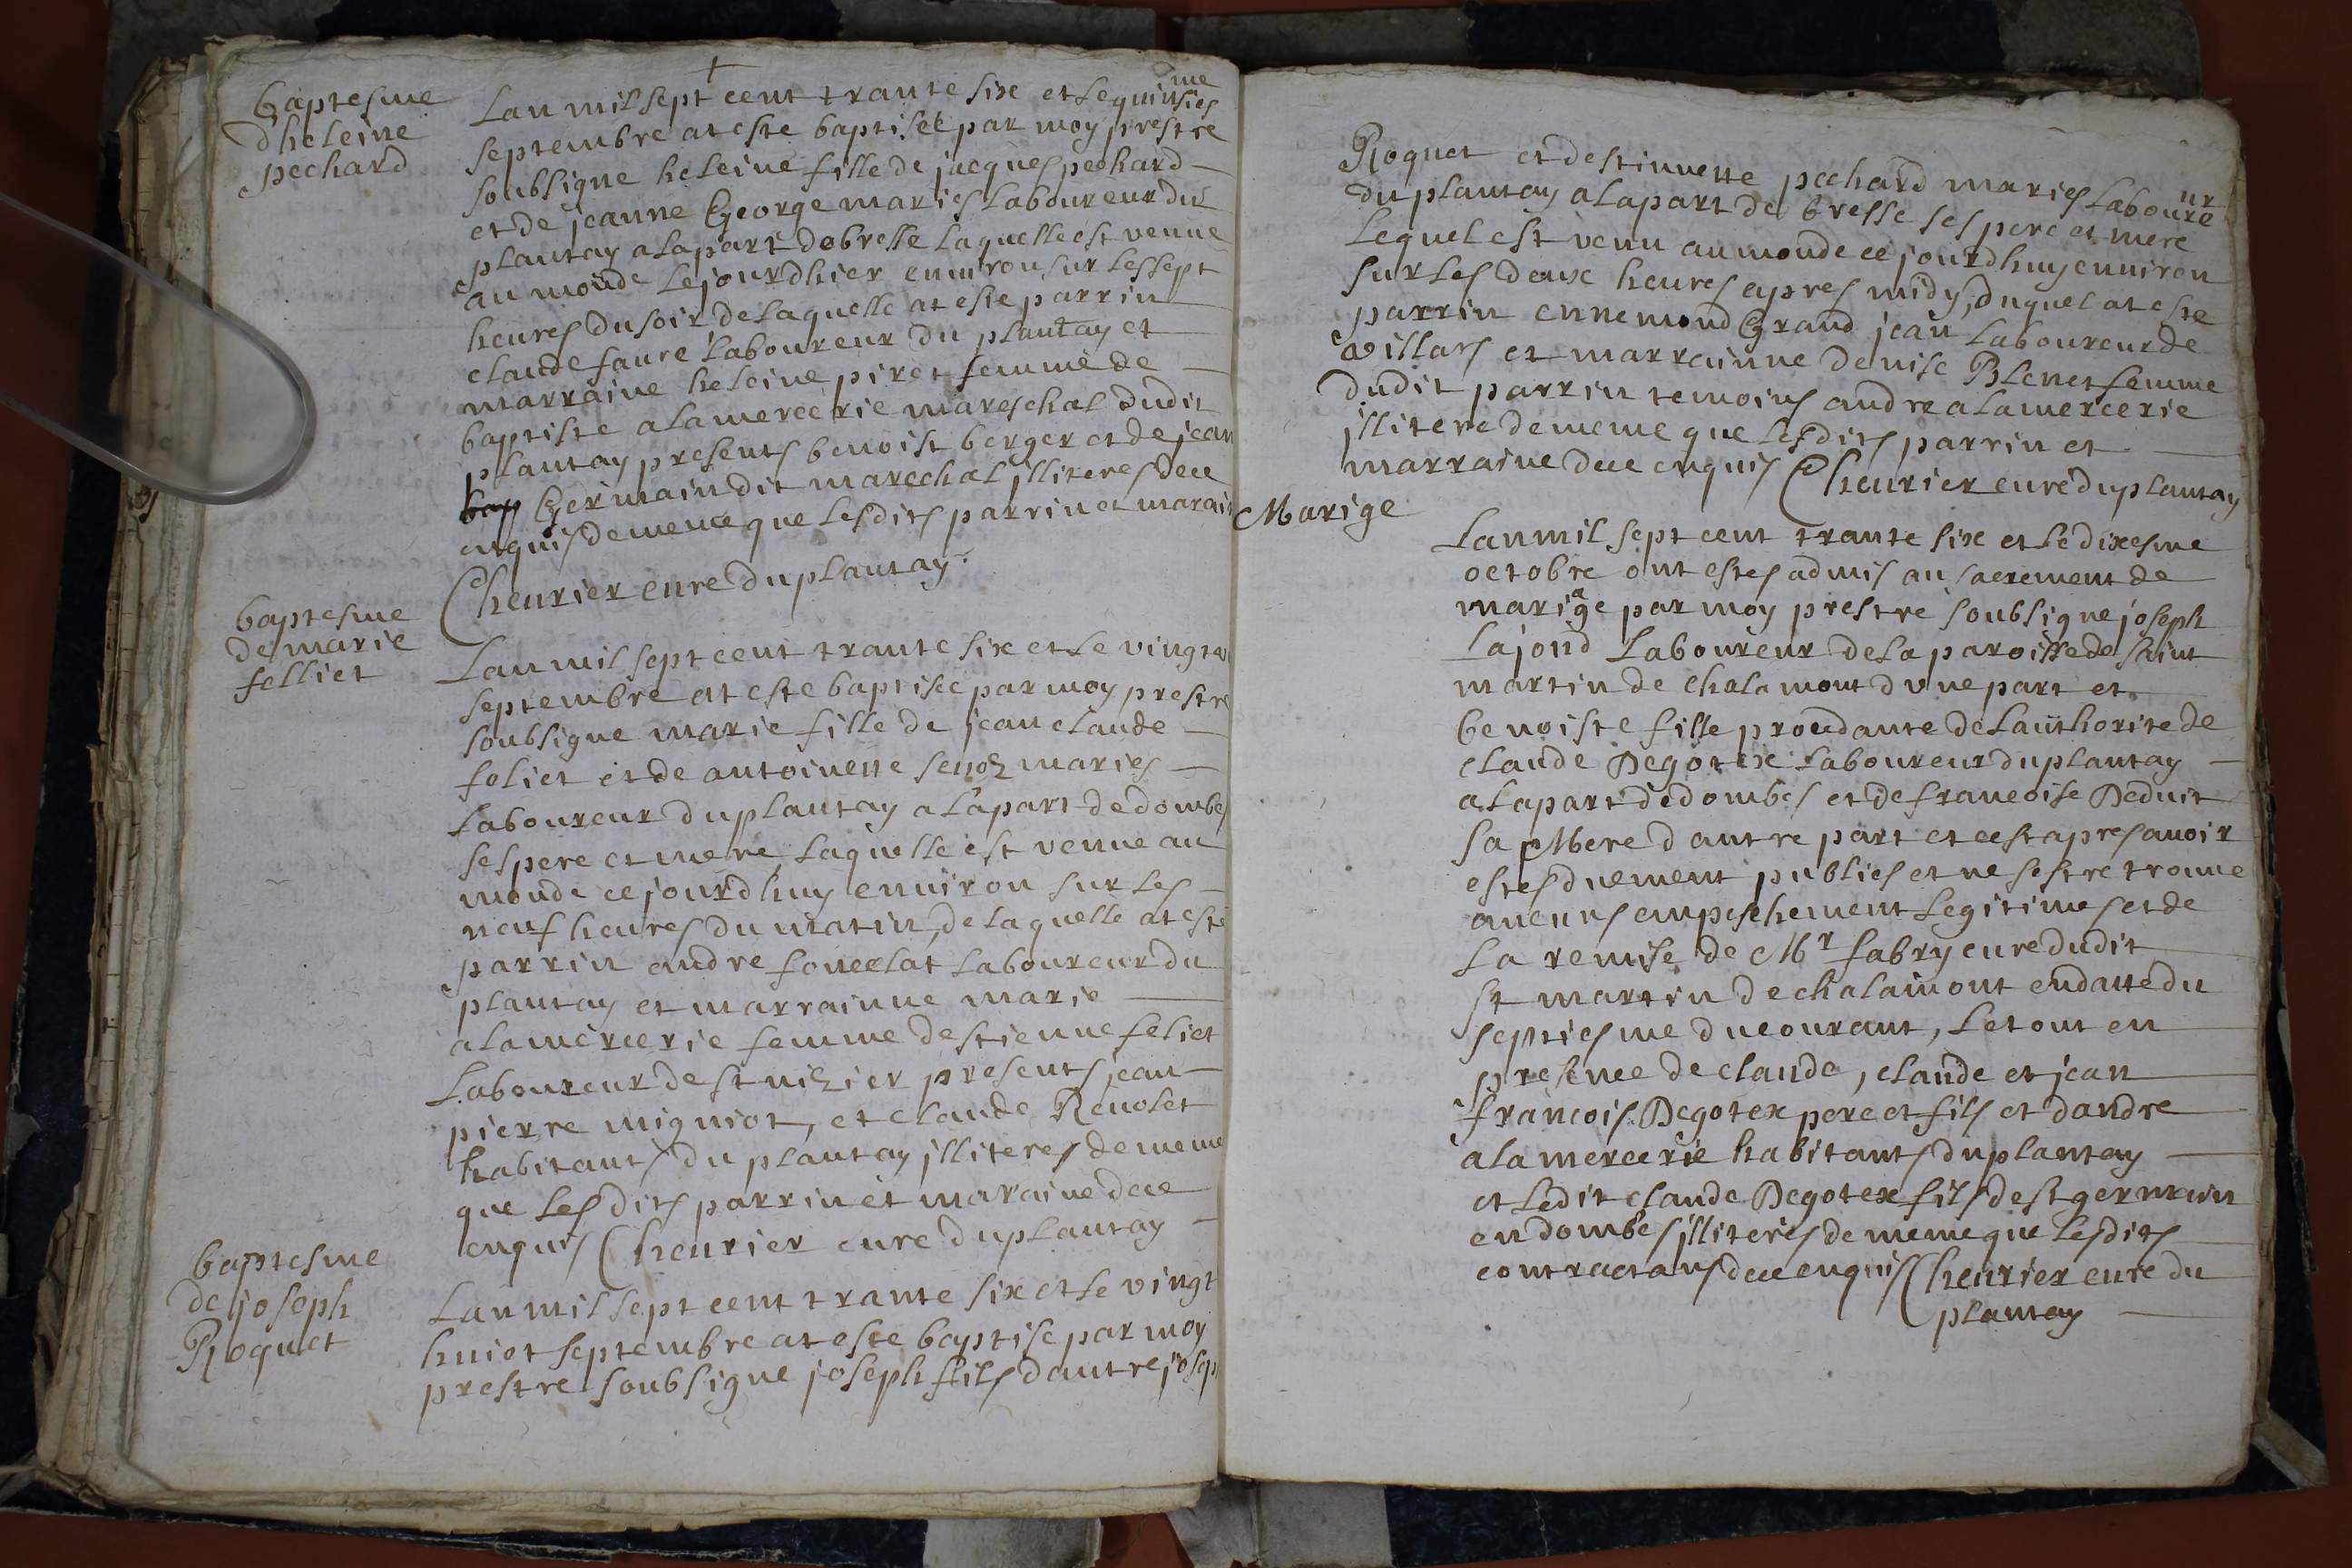 baptesme
dheleine
pechard
Lan mil sept cent trante six et le quinsiesme
septembre at este baptisée par moy prestre
soubsigne heleine fille de jacques pechard
et de jeanne George maries laboureur du
plantay a la part de bresse laquelle est venue
au monde le jourdhier environ sur les sept
heures du soir, de laquelle at este parrin
claude faure laboureur du plantay et
marraine heleine piret femme de
baptiste alamercerie mareschal dudit
plantay presents benoist berger et de jean
Germain dit marechal jlliteres dece
enquis de meme que lesdits parrin et marain
Cheurier cure du plantay.
baptesme
de marie
felliet
Lan mil sept cent trante six et le vingt
septembre at este baptisée par moy prestre
soubsigne marie fille de jean claude
feliet et de antoinette maries
laboureur du plantay a la part de dombes
ses pere et mere laquelle est venue au
monde ce jourdhuy enuiron sur les
neuf heures du matin, de laquelle at este
parrin andre fonteclat laboureur du
plantay et marrainne marie
alamercerie femme destienne feliet
laboureur de st nizier presents jean
pierre migniot, et claude Reuolet
habitants du plantay jlliteres de meme
que les dits parrin et maraine dece
enquis Cheurier cure du plantay
baptesme
de joseph
Roquet
Lan mil sept cent trante six et le vingt
huict septembre at este baptise par moy
prestre soubsigne joseph fils dautre josep
Roquet et destiennette pechard maries laboureur
du plantay a la part de bresse ses pere et mere
lequel est venu au monde ce jourdhuy enuiron
sur les deux heures apres midy, duquel at este
parrin ennemond Grand jean laboureur de
villars et marrainne denise Blenet femme
dudit parrin temoins andre alamercerie
jllitere de meme que lesdits parrin et
marraine dece enquis Cheurier curé du plantay
Marige
Lan mil sept cent trante six et le dixesme
octobre ont estes admis au sacrement de
mariage par moy prestre soubsigne joseph
lajond laboureur de la paroisse de saint
martin de chalamont dvne part et
benoiste fille procedante de lauthorite de
claude Degotex laboureur du plantay
a la part de dombes et de francoise Deduit
sa Mere d autre part et cest apres auoir
estes duement publies et ne sestre trouue
aucuns empeschement legitimes et de
la remise de Mr fabry cure dudit
st martin de chalamont en datte du
septiesme du courant, le tout en
presence de claude, claude et jean
francois Degotex pere et fils et dandre
alamercerie habitants du plantay
et ledit claude Degotex fils de st germain
en dombes jlliteres de meme que lesdits
contractans dece enquis Cheurier cure du
plantay